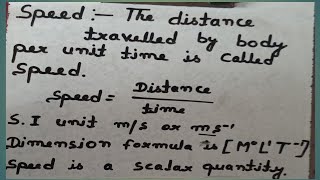 Speed :- The distance
travelled by body
per unit time is called
Speed.
Speed = Distance
time
S. I unit m/s or ms⁻¹
Dimension formula is [M⁰L¹T⁻¹]
Speed is a scalar quantity.